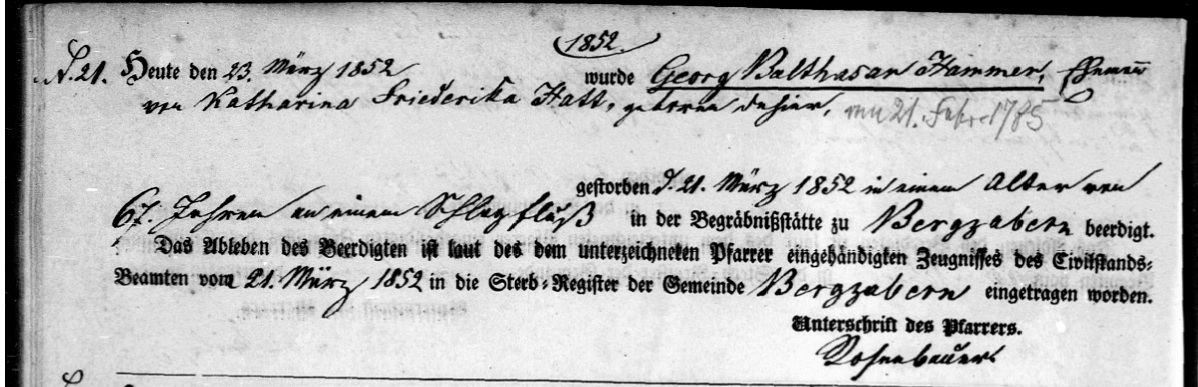 1852
N. 21. Heute den 23. März 1852 wurde Georg Balthasar Hammer, Ehemann
von Katharina Friederika Hatt, geboren dahier, am 21. Febr. 1785
gestorben d. 21. März 1852 in einem Alter von
67. Jahren an einem Schlagfluß in der Begräbnißstätte zu Bergzabern beerdigt.
Das Ableben des Beerdigten ist laut des dem unterzeichneten Pfarrer eingehändigten Zeugnisses des Civilstands-
Beamten vom 21. März 1852 in die Sterb-Register der Gemeinde Bergzabern eingetragen worden.
Unterschrift des Pfarrers.
Rosenbauer